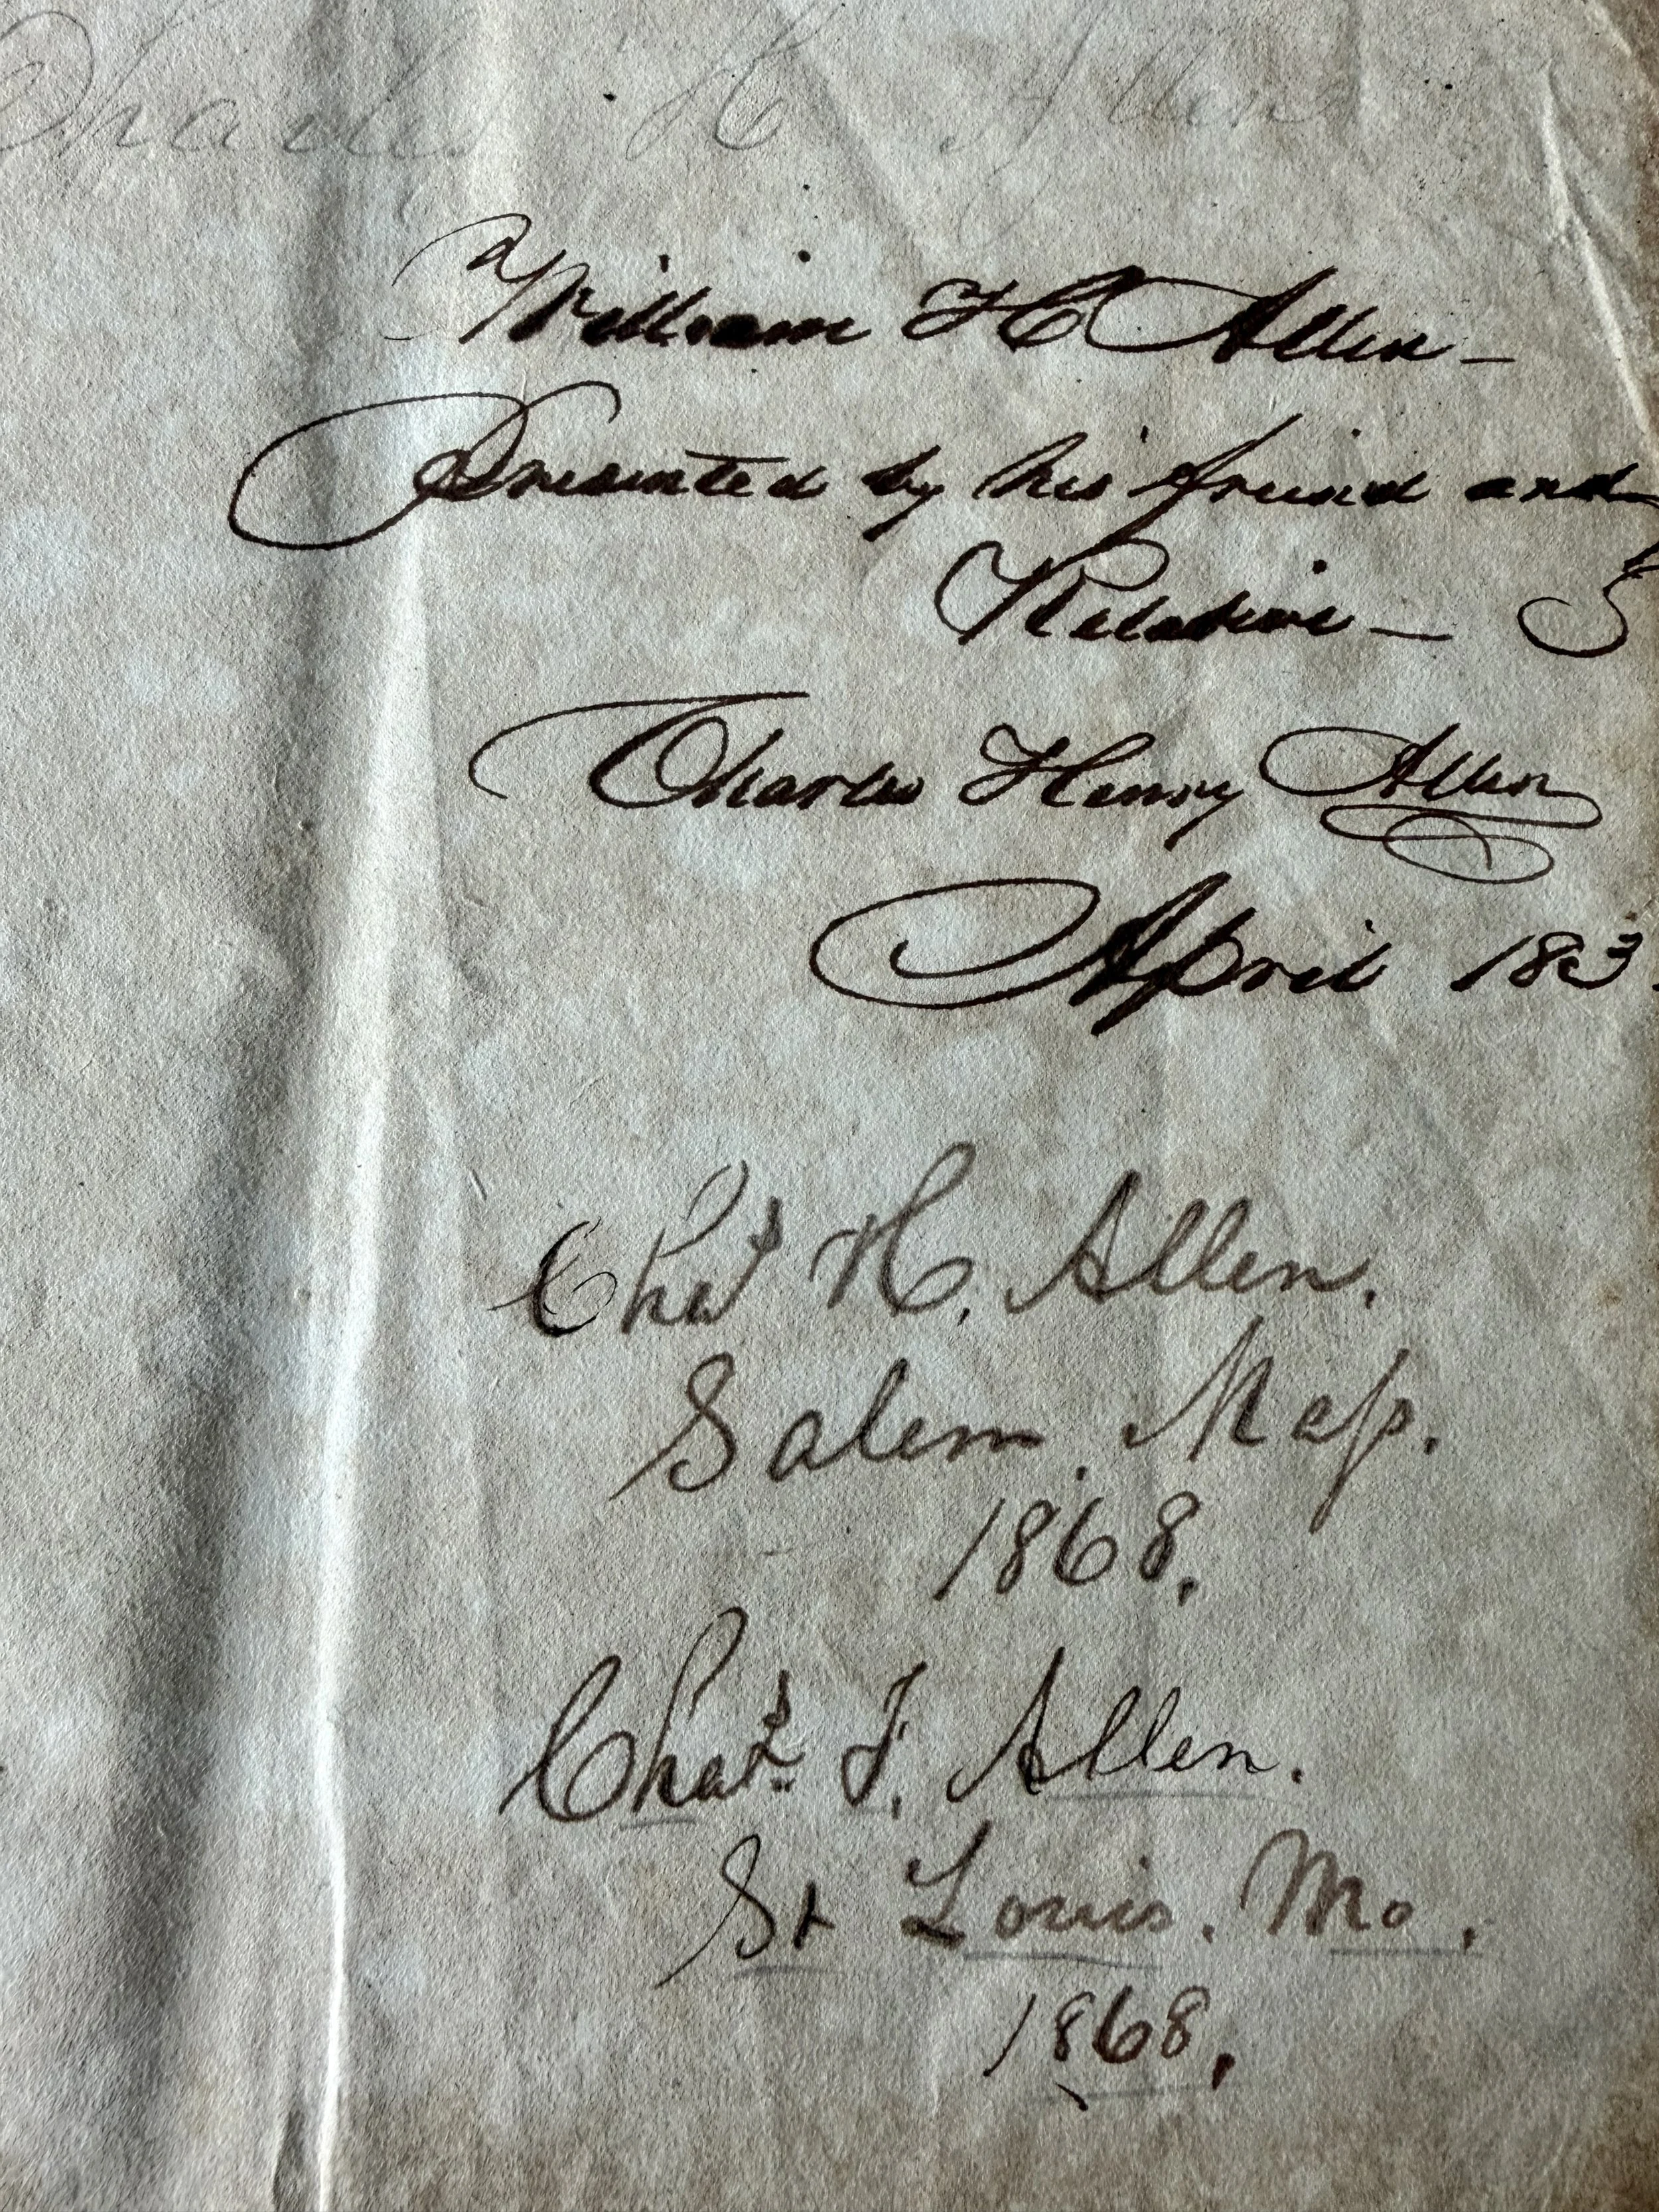 Charles H Allen
William H Allen —
Presented by his friend and
Relative —
Charles Henry Allen
April 183
Chas H. Allen.
Salem. Maſs.
1868.
Chas. F. Allen.
St Louis. Mo.
1868.